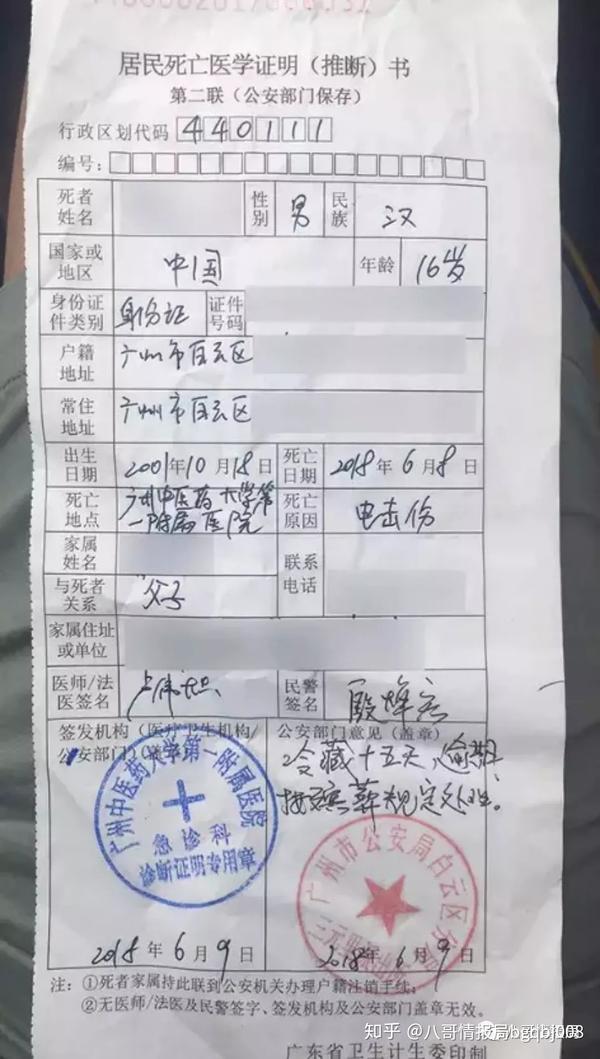 居民死亡医学证明（推断）书
第二联（公安部门保存）
行政区划代码 440111
编号：
死者姓名 性别 男 民族 汉
国家或地区 中国 年龄 16岁
身份证件类别 身份证 证件号码
户籍地址 广州市白云区
常住地址 广州市白云区
出生日期 2001年10月18日 死亡日期 2018年6月8日
死亡地点 广州中医药大学第一附属医院 死亡原因 电击伤
家属姓名 联系电话
与死者关系 父子
家属住址或单位
医师/法医签名 民警签名
签发机构（医疗卫生机构/公安部门）（盖章） 公安部门意见（盖章）
冷藏十五天，逾期
按殡葬规定处理。
广州中医药大学第一附属医院
急诊科
诊断证明专用章
广州市公安局白云区分局
2018年6月9日 2018年6月9日
注：①死者家属持此联到公安机关办理户籍注销手续；
②无医师/法医及民警签字、签发机构及公安部门盖章无效。
知乎 @八哥情报局
bgqbj008
广东省卫生计生委印制